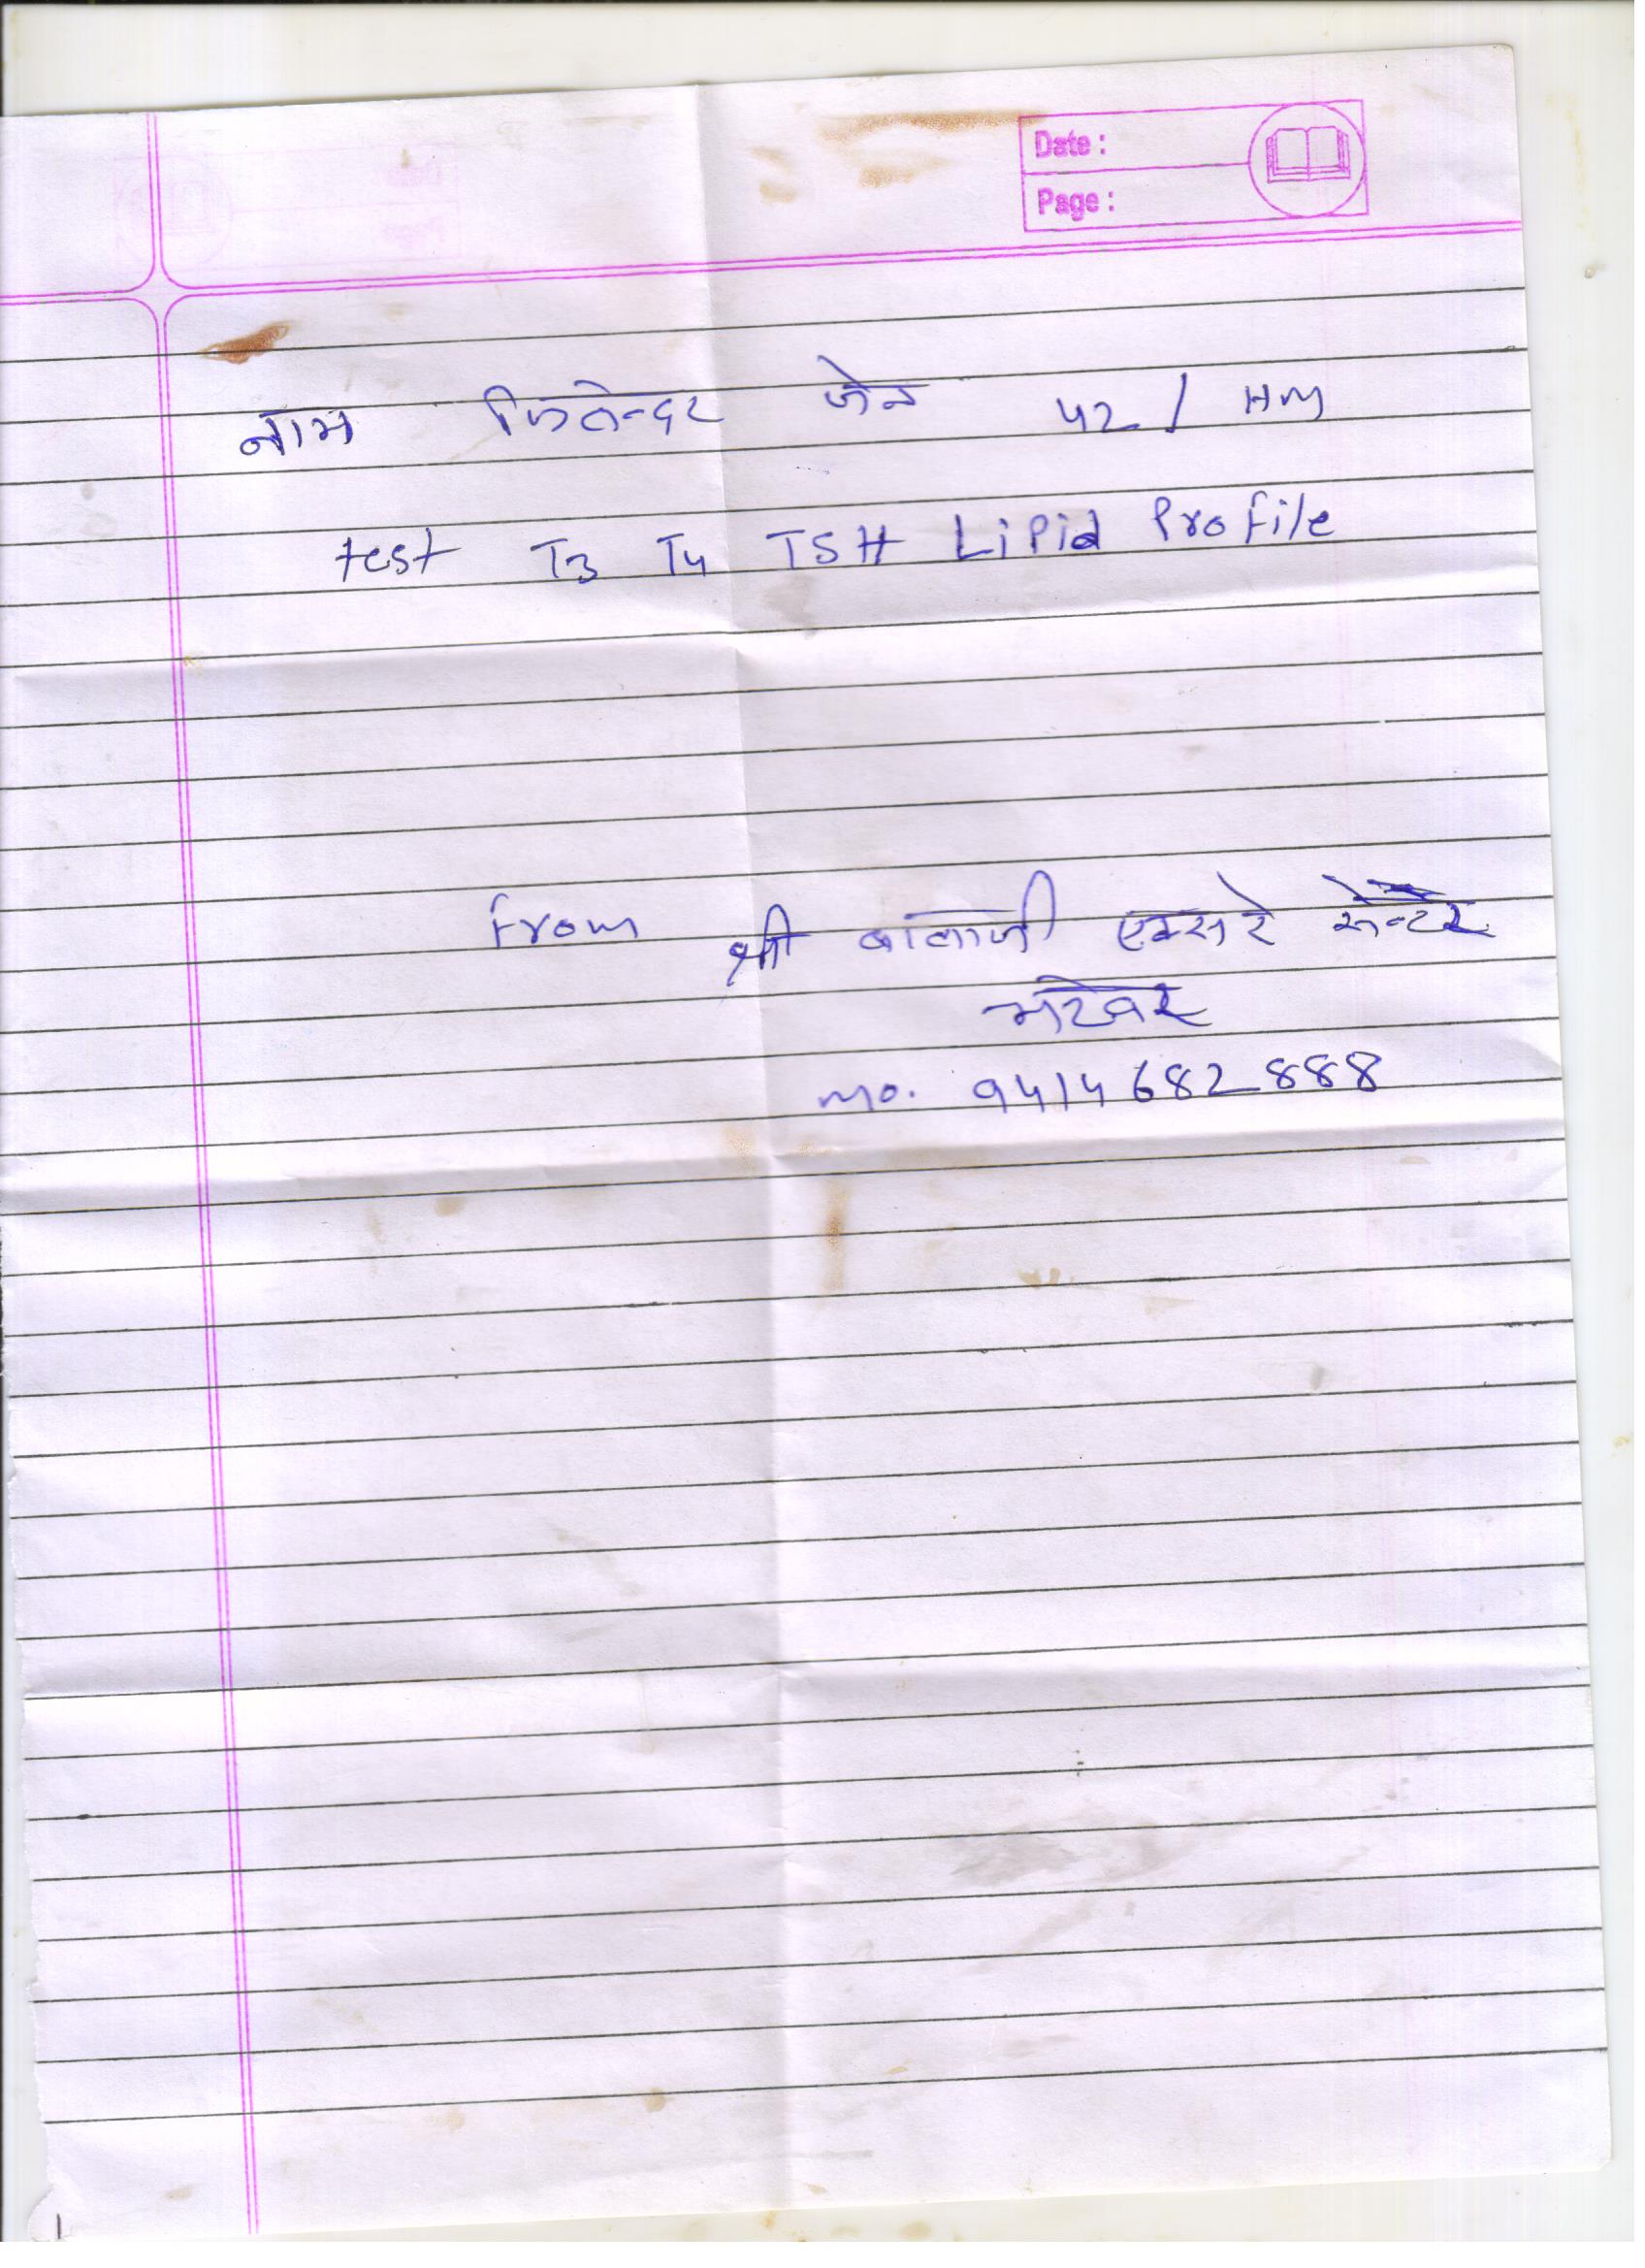 Date :
Page :
नाम जितेन्दर जेन 42 / HM
test T3 T4 TSH Lipid Profile
from श्री बालाजी एक्सरे सेन्टर
भटेवर
mo. 9414682888